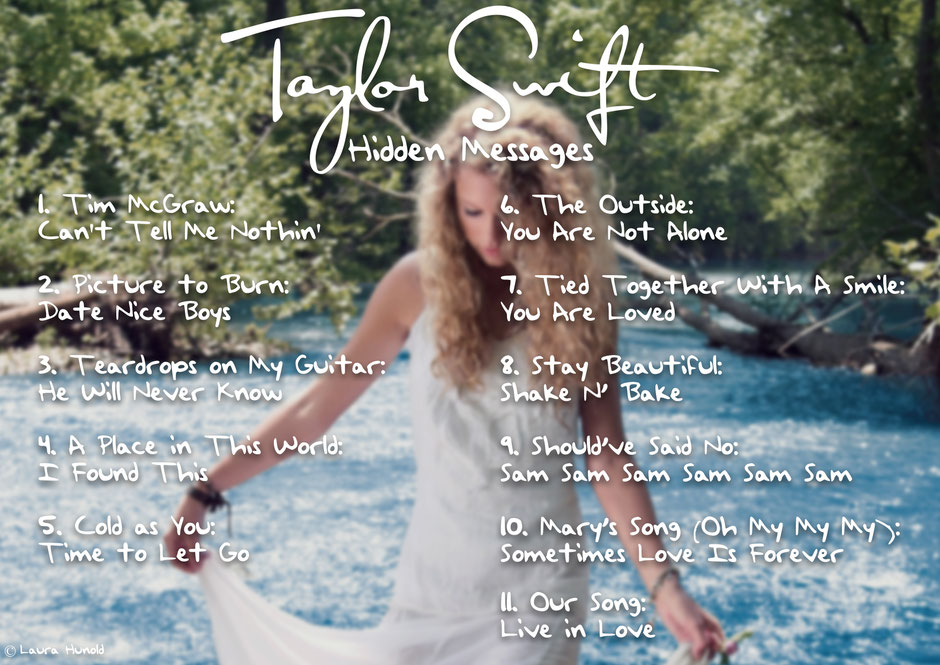 Taylor Swift
Hidden Messages
1. Tim McGraw:
Can't Tell Me Nothin'
2. Picture to Burn:
Date Nice Boys
3. Teardrops on My Guitar:
He Will Never Know
4. A Place in This World:
I Found This
5. Cold as You:
Time to Let Go
6. The Outside:
You Are Not Alone
7. Tied Together With A Smile:
You Are Loved
8. Stay Beautiful:
Shake N' Bake
9. Should've Said No:
Sam Sam Sam Sam Sam Sam
10. Mary's Song (Oh My My My):
Sometimes Love Is Forever
11. Our Song:
Live in Love
© Laura Hunold